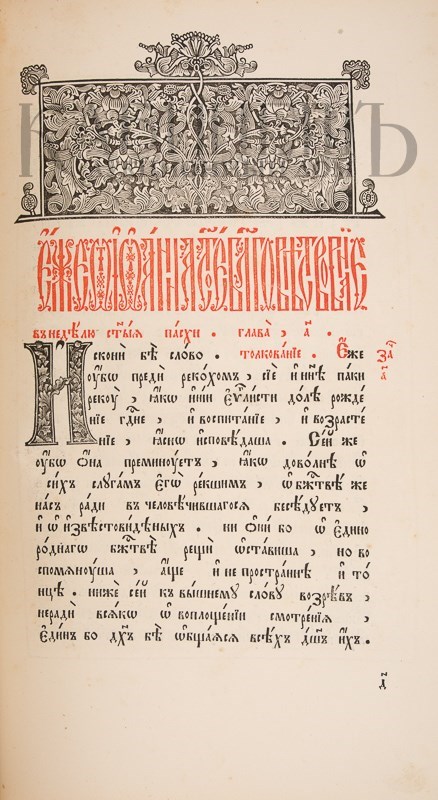 Є҆́же ѿ і҆ѡа́нна ст҃о́е бл҃говѣствова́нїе
въ недѣ́лю ст҃ы́ѧ па́схи . глава̀ , а҃ .
И сконѝ бѣ̀ сло́во . толкова́нїе . Є҆́же за҃ а҃
ᲂу҆́бѡ предѝ реко́хомъ , сїѐ и҆ нн҃ѣ па́ки
рекꙋ̀ , ꙗ҆́кѡ и҆ні́и є҆ѵⷢ҇ли́сти до́лѣ рожде́
нїе гдⷭ҇не , и҆ воспита́нїе , и҆ возрасте́
нїе , ꙗ҆́снѡ и҆сповѣ́даша . Се́й же
ᲂу҆́бѡ ѻ҆́на премину́етъ , ꙗ҆́кѡ дово́лнѣ ѡ҆
си́хъ слꙋга́мъ є҆гѡ̀ ре́кшимъ , ѡ҆ бжⷭ҇твѣ́ же
на́съ ра́ди въ человѣ́чившагосѧ бесѣ́дꙋетъ ,
и҆ ѡ҆ и҆звѣстови́дѣныхъ . ни ѻ҆ни́ бо ѡ҆ є҆дино
ро́днагѡ бжⷭ҇твѣ̀ рещѝ ѡ҆ста́виша , но во
спомѧнꙋ́ша , а҆́ще и҆ не простра́ннѣ и҆ то́
нцѣ . ни́же се́й къ вы́шнемꙋ сло́вꙋ возрѣ́въ ,
нерадѝ всѧ́кѡ ѡ҆ воплоще́нїи смотре́нїѧ ,
є҆ди́нъ бо дх҃ъ бѣ̀ ѡ҆бща́ѧсѧ всѣ́хъ дш҃а́мъ и҆́хъ .
д҃